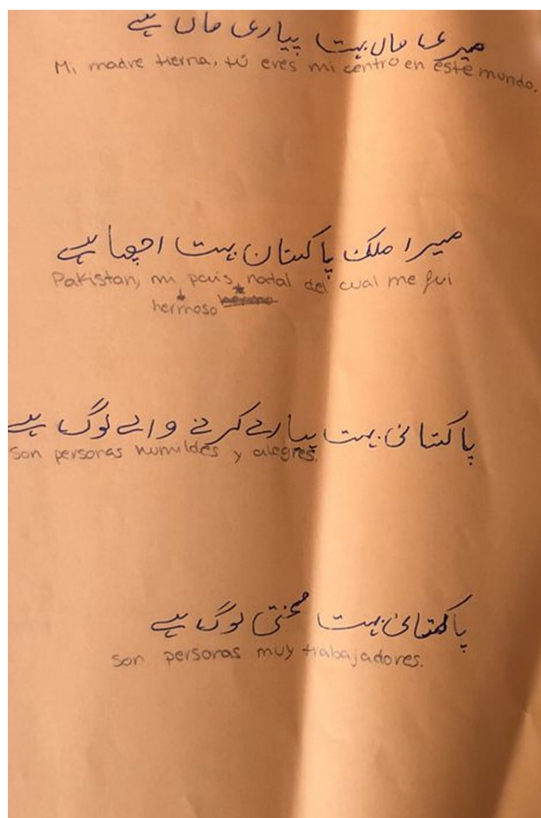 میری ماں بہت پیاری ماں ہے
Mi madre tierna, tú eres mi centro en este mundo.
میرا ملک پاکستان بہت اچھا ہے
Pakistan, mi país natal del cual me fui
hermoso
پاکستانی بہت پیارے کرنے والے لوگ ہے
Son personas humildes y alegres.
پاکستانی بہت محنتی لوگ ہے
Son personas muy trabajadores.